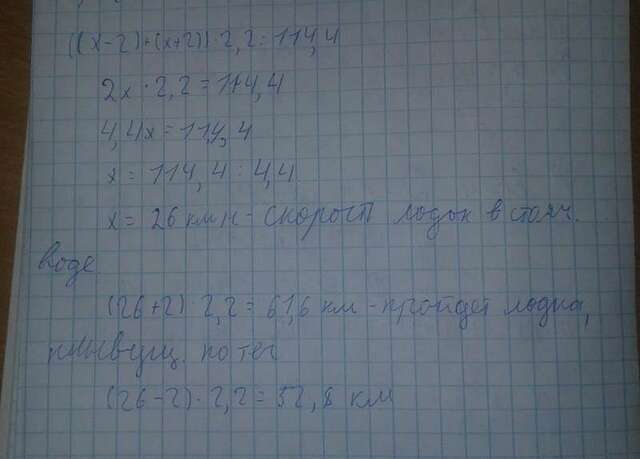 ((x-2)+(x+2))·2,2=114,4
2x·2,2=114,4
4,4x=114,4
x=114,4:4,4
x=26 км/ч - скорость лодок в стояч.
воде
(26+2)·2,2=61,6 км - пройдет лодка,
плывущ. по теч
(26-2)·2,2=52,8 км